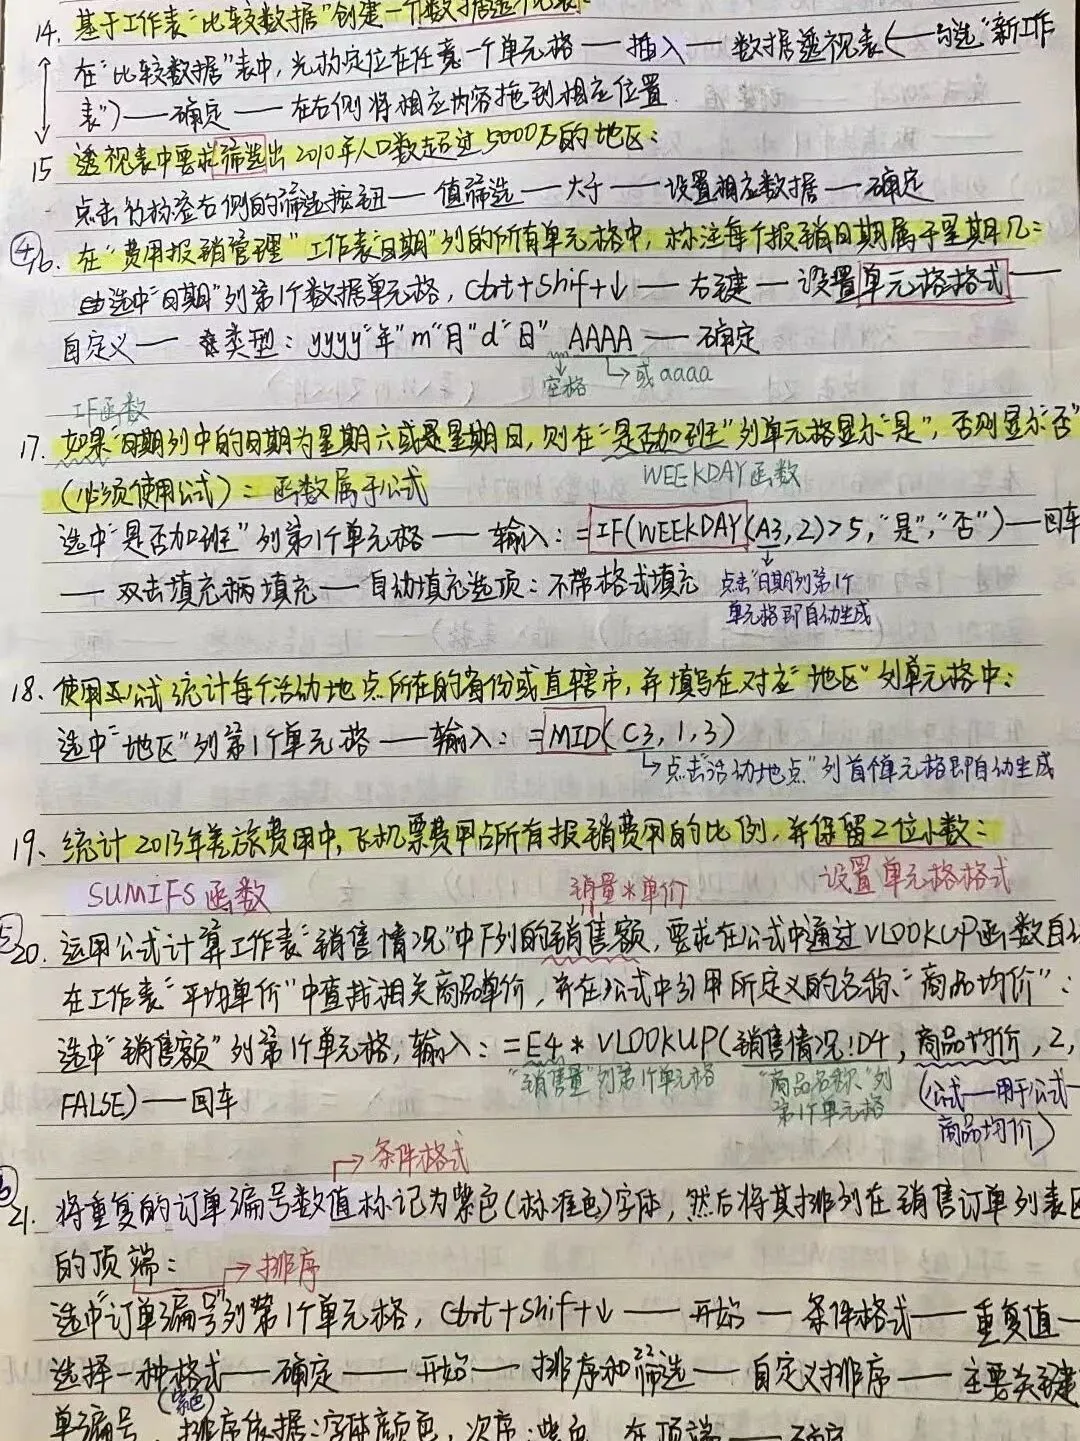 14. 基于工作表"比较数据"创建一个数据透视表:
在"比较数据"表中,光标定位在任意一个单元格——插入——数据透视表(——勾选"新工作
表")——确定——在右侧将相应内容拖到相应位置.
15 透视表中要求筛选出2010年人口数超过5000万的地区:
点击行标签右侧的筛选按钮——值筛选——大于——设置相应数据——确定
④
16. 在"费用报销管理"工作表"日期"列的所有单元格中,标注每个报销日期属于星期几:
选中"日期"列第1个数据单元格,Ctrt+Shif+↓——右键——设置单元格格式——
自定义——类型:yyyy"年"m"月"d"日" AAAA——确定
空格 或aaaa
IF函数
17. 如果"日期列中的日期为星期六或是星期日,则在"是否加班"列单元格显示"是",否则显示"否"
WEEKDAY函数
(必须使用公式):函数属于公式
选中"是否加班"列第1个单元格——输入:=IF(WEEKDAY(A3,2)>5,"是","否")——回车
——双击填充柄填充——自动填充选项:不带格式填充
点击"日期"列第1个
单元格即自动生成
18、使用公式统计每个活动地点所在的省份或直辖市,并填写在对应"地区"列单元格中:
选中"地区"列第1个单元格——输入:=MID(C3,1,3)
点击"活动地点"列首个单元格即自动生成
19、统计2013年差旅费用中,飞机票费用占所有报销费用的比例,并保留2位小数:
SUMIFS函数 销量*单价 设置单元格格式
⑤20. 运用公式计算工作表"销售情况"中F列的销售额,要求在公式中通过VLOOKUP函数自
在工作表"平均单价"中查找相关商品单价,并在公式中引用所定义的名称"商品均价":
选中"销售额"列第1个单元格,输入:=E4*VLOOKUP(销售情况!D4,商品均价,2,
"销售量"列第1个单元格 "商品名称"列
第1个单元格
FALSE)——回车
(公式——用于公式——
商品均价)
条件格式
21. 将重复的订单编号数值标记为紫色(标准色)字体,然后将其排列在销售订单列表区
的顶端:
排序
选中"订单编号"列第1个单元格,Ctrt+Shif+↓——开始——条件格式——重复值——
选择一种格式——确定——开始——排序和筛选——自定义排序——主要关键
(紫色)
单编号,排序依据:字体颜色,次序:紫色,在顶端——确定